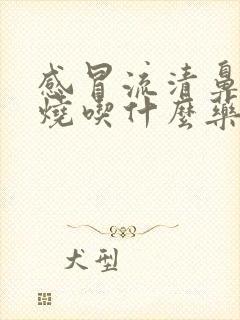 感冒流清鼻
燒喫什麼藥
犬型